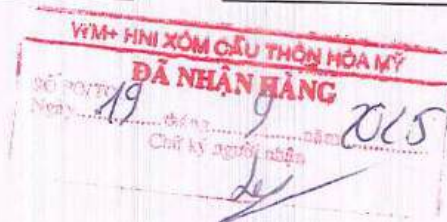 WM+ HNI XÓM CẦU THÔN HÒA MỸ
ĐÃ NHẬN HÀNG
SỐ PO/TO
Ngày 19 tháng 9 năm 2025
Chữ ký người nhận